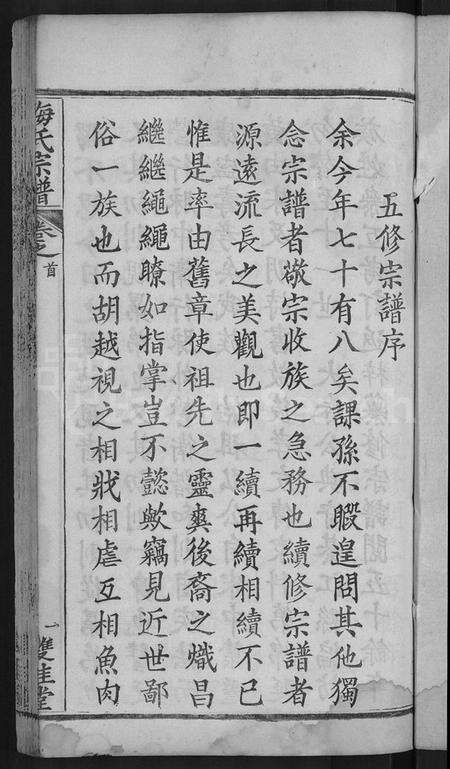 五修宗譜序
余今年七十有八矣課孫不暇遑問其他獨
念宗譜者敬宗收族之急務也續修宗譜者
源遠流長之美觀也即一續再續相續不已
惟是率由舊章使祖先之靈爽後裔之熾昌
繼繼繩繩瞭如指掌豈不懿歟竊見近世鄙
俗一族也而胡越視之相戕相虐互相魚肉
梅氏宗譜
卷之首
一
雙桂堂